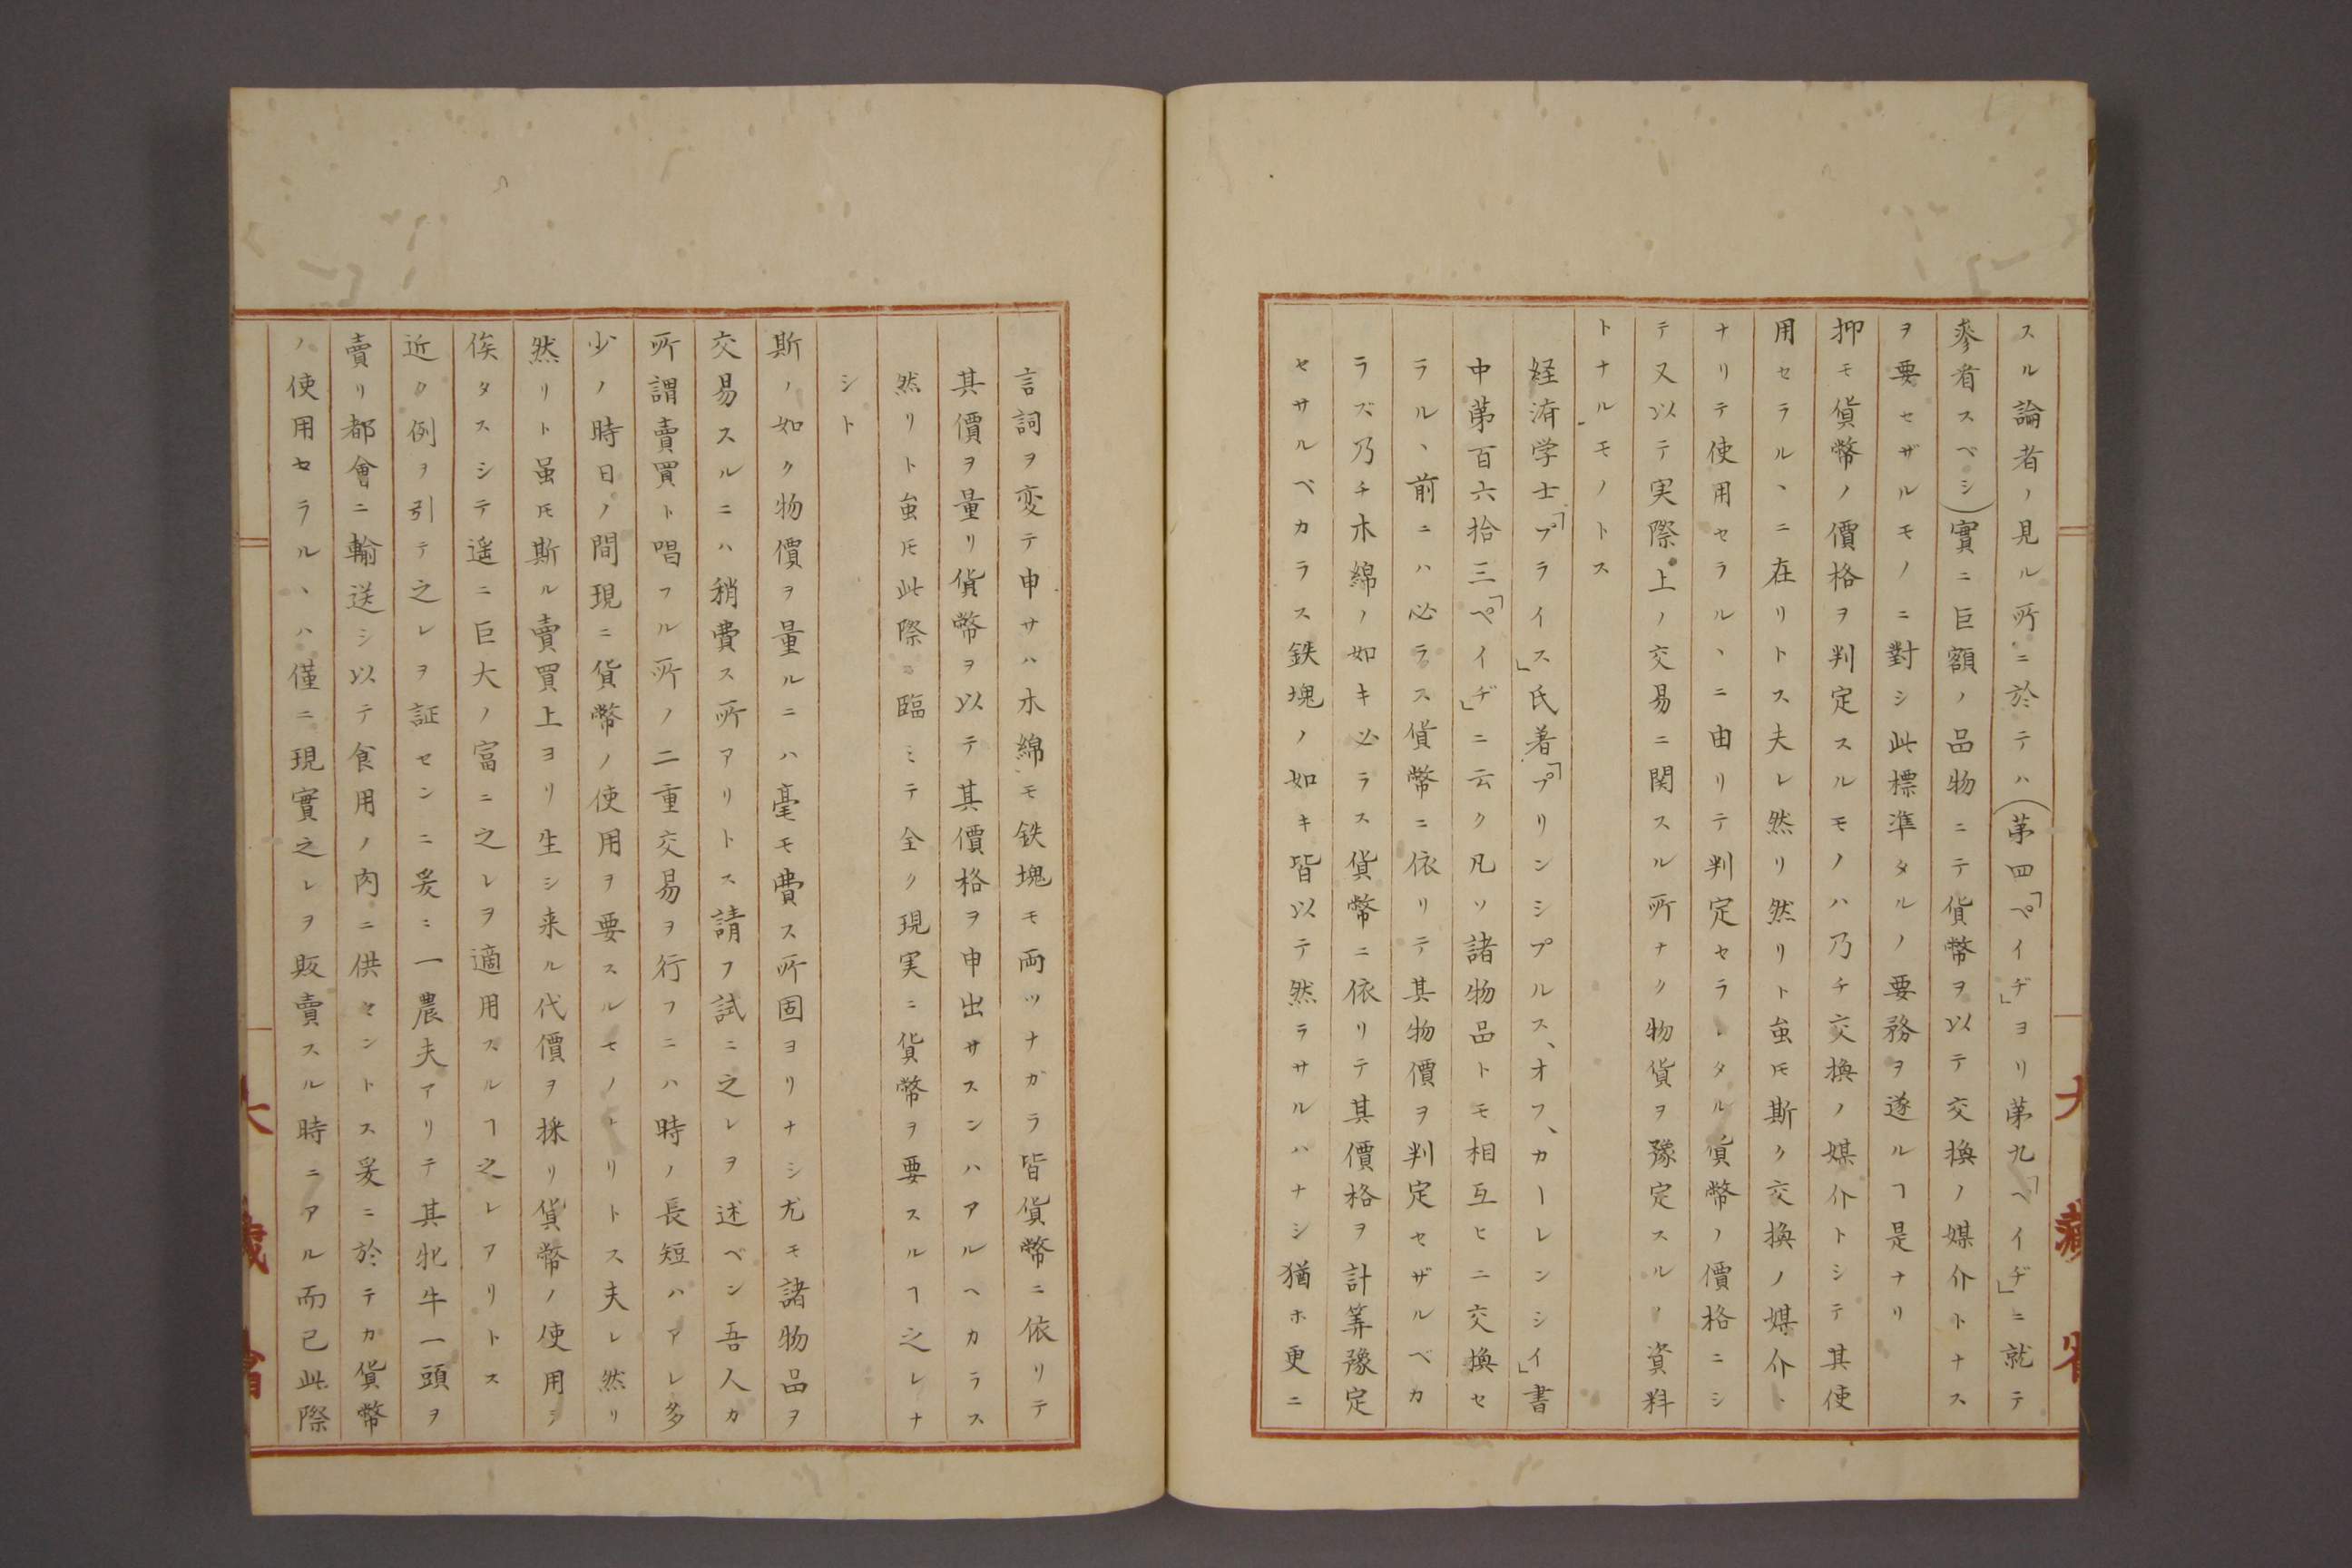 スル論者ノ見ル所ニ於テハ(第四「ペイヂ」ヨリ第九「ペイヂ」ニ就テ
参省スベシ)實ニ巨額ノ品物ニテ貨幣ヲ以テ交換ノ媒介トナス
ヲ要セザルモノニ對シ此標準タルノ要務ヲ遂ルヿ是ナリ
抑モ貨幣ノ價格ヲ判定スルモノハ乃チ交換ノ媒介トシテ其使
用セラルヽニ在リトス夫レ然リ然リト虽𪜈斯ク交換ノ媒介ト
ナリテ使用セラルヽニ由リテ判定セラレタル貨幣ノ價格ニシ
テ又以テ実際上ノ交易ニ関スル所ナク物貨ヲ豫定スルノ資料
トナルモノトス
経済学士「プライス」氏著「プリンシプルス、オフ、カーレンシイ」書
中第百六拾三「ペイヂ」ニ云ク凡ソ諸物品トモ相互ヒニ交換セ
ラルヽ前ニハ必ラス貨幣ニ依リテ其物價ヲ判定セザルベカ
ラズ乃チ木綿ノ如キ必ラス貨幣ニ依リテ其價格ヲ計筭豫定
セサルベカラス鉄塊ノ如キ皆以テ然ラサルハナシ猶ホ更ニ
大藏省
言詞ヲ変テ申サハ木綿モ鉄塊モ両ツナガラ皆貨幣ニ依リテ
其價ヲ量リ貨幣ヲ以テ其價格ヲ申出サスンハアルヘカラス
然リト虽𪜈此際ニ臨ミテ全ク現実ニ貨幣ヲ要スルヿ之レナ
シト
斯ノ如ク物價ヲ量ルニハ毫モ費ス所固ヨリナシ尤モ諸物品ヲ
交易スルニハ稍費ス所アリトス請フ試ニ之レヲ述ベン吾人カ
所謂賣買ト唱フル所ノ二重交易ヲ行フニハ時ノ長短ハアレ多
少ノ時日ノ間現ニ貨幣ノ使用ヲ要スルモノトリトス夫レ然リ
然リト虽𪜈斯ル賣買上ヨリ生シ来ル代價ヲ採リ貨幣ノ使用ヲ
俟タスシテ遥ニ巨大ノ富ニ之レヲ適用スルヿ之レアリトス
近ク例ヲ引テ之レヲ証センニ爰ニ一農夫アリテ其牝牛一頭ヲ
賣リ都會ニ輸送シ以テ食用ノ肉ニ供セントス爰ニ於テカ貨幣
ノ使用セラルヽハ僅ニ現實之レヲ販賣スル時ニアル而已此際
大藏省